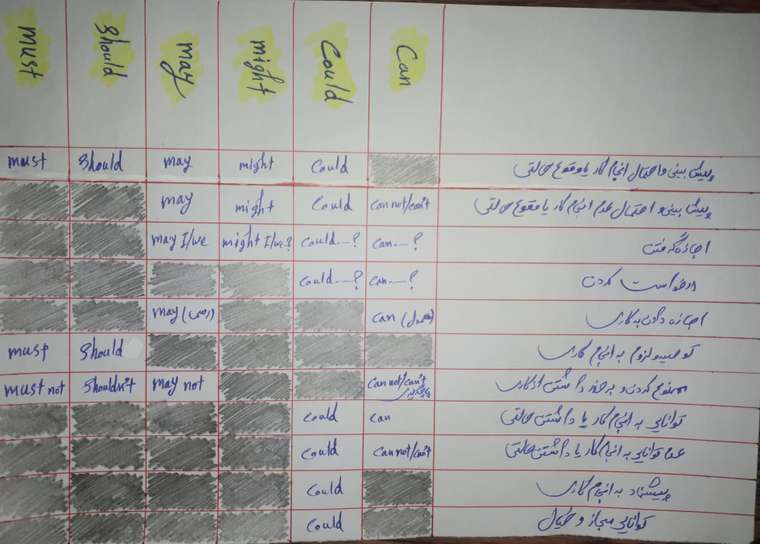 must should may might Could Can
must should may might Could پیش بینی و احتمال انجام کار یا وقوع حالتی
may might Could can not/can't پیش بینی و احتمال عدم انجام کار یا وقوع حالتی
may I/we might I/we? Could....? can....? اجازه گرفتن
Could....? can....? درخواست کردن
may (رسمی) can (معمول) اجازه دادن به کاری
must should توصیه و لزوم به انجام کاری
must not shouldn't may not can not/can't ممنوع کردن و برحذر داشتن از کاری
could can توانایی به انجام کار یا داشتن حالتی
Could can not/can't عدم توانایی به انجام کار یا داشتن حالتی
Could پیشنهاد به انجام کاری
Could توانایی مجاز و خیال